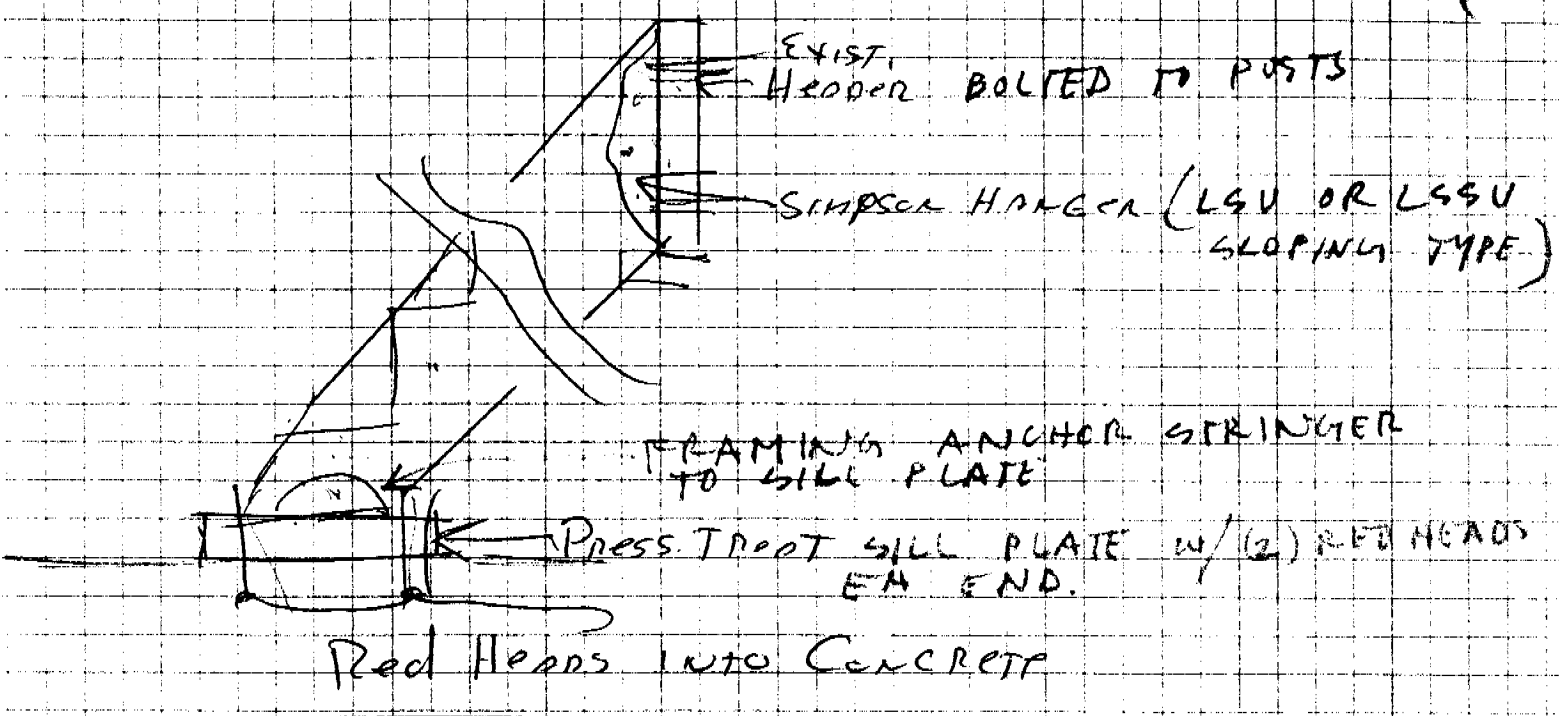 EXIST.
HEADER BOLTED TO POSTS
SIMPSON HANGER (LSU OR LSSU
SLOPING TYPE)
FRAMING ANCHOR STRINGER
TO SILL PLATE
PRESS. TREAT SILL PLATE W/(2) RED HEADS
EA END.
Red HEADS INTO CONCRETE